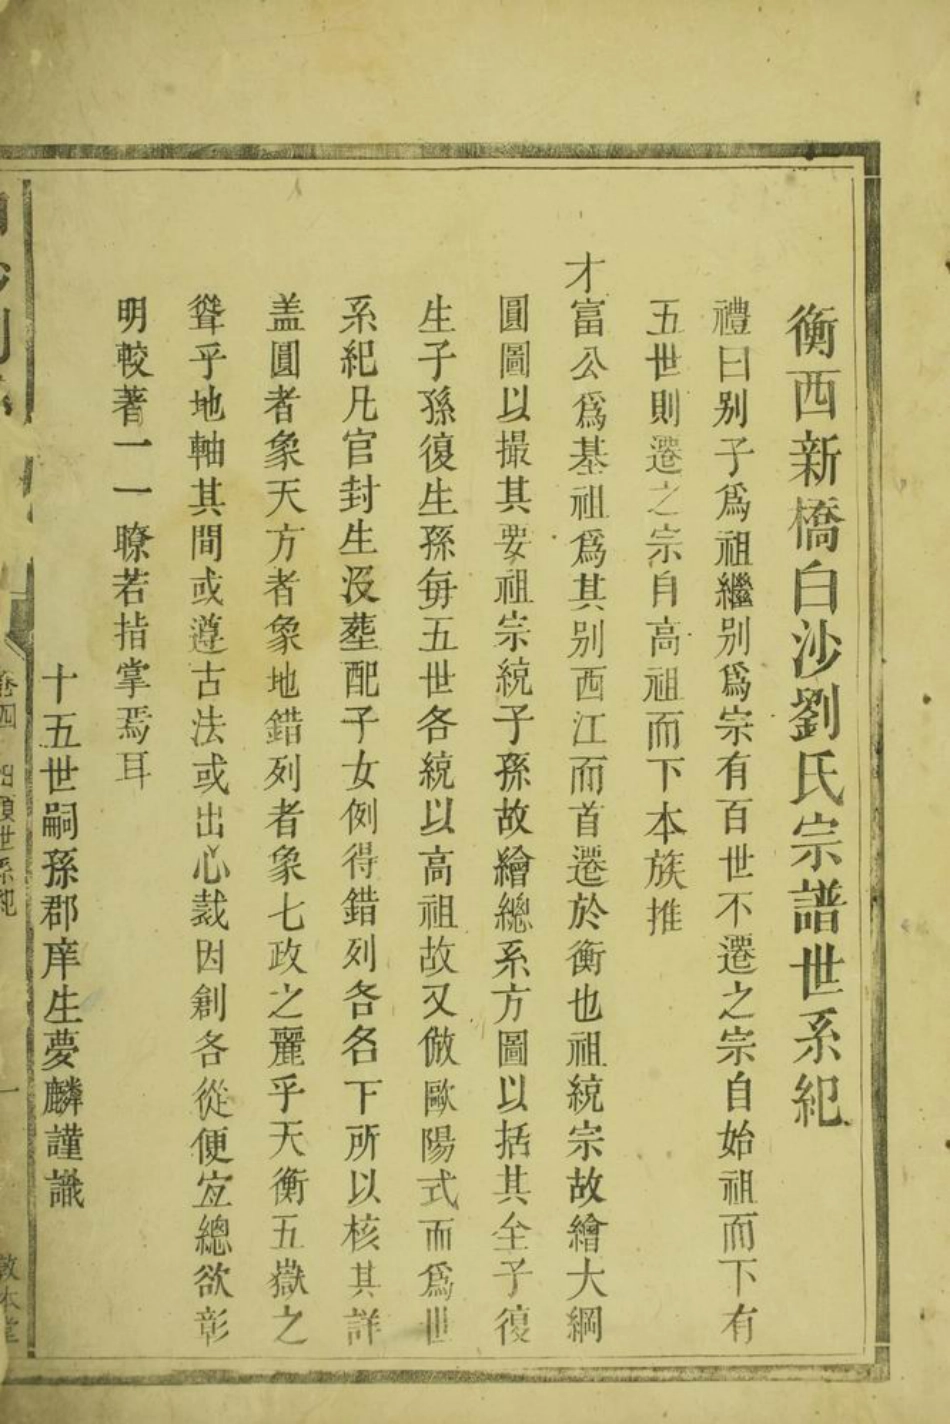 衡西新橋白沙劉氏宗譜世系紀
禮曰别子爲祖繼别爲宗有百世不遷之宗自始祖而下有
五世則遷之宗自高祖而下本族推
才富公爲基祖爲其别西江而首遷於衡也祖統宗故繪大綱
圓圖以撮其要祖宗統子孫故繪總系方圖以括其全子復
生子孫復生孫每五世各統以高祖故又倣歐陽式而爲世
系紀凡官封生沒塟配子女例得錯列各名下所以核其詳
盖圓者象天方者象地錯列者象七政之麗乎天衡五嶽之
聳乎地軸其間或遵古法或出心裁因創各從便宐總欲彰
明較著一一瞭若指掌焉耳
十五世嗣孫郡庠生夢麟謹識
卷四
世系紀
一
敦本堂